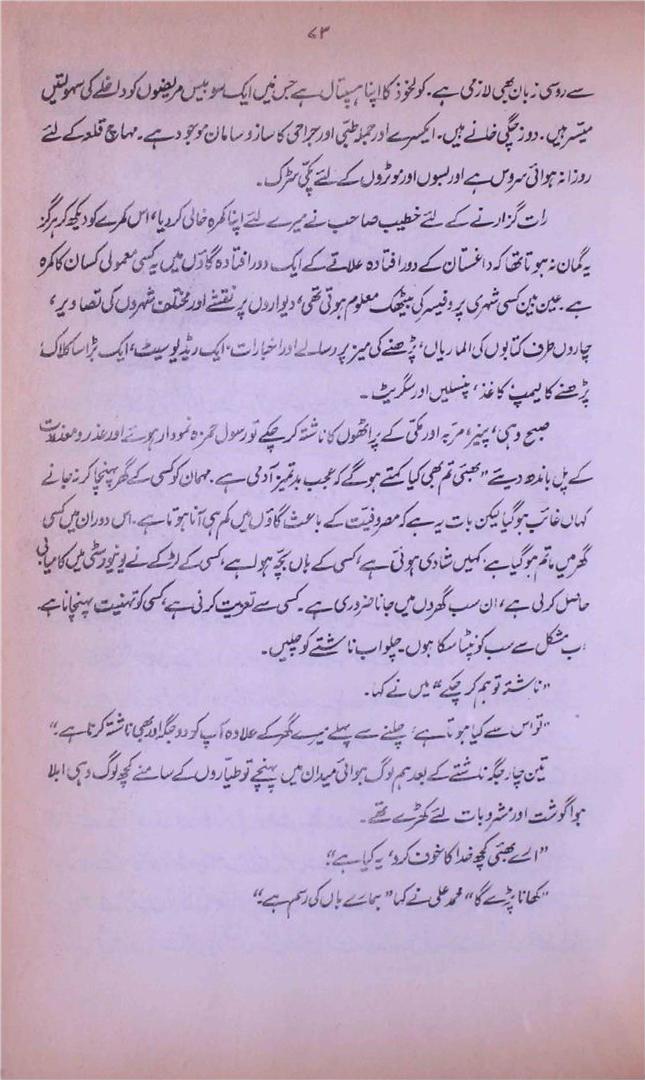 ۷۳
سے روسی زبان بھی لازمی ہے۔ کولخوذ کا اپنا ہسپتال ہے جس میں ایک سو بیس مریضوں کو داخلے کی سہولتیں
میسر ہیں۔ دو زچگی خانے ہیں۔ ایکسرے اور جملہ طبّی اور جراحی کا ساز و سامان موجود ہے۔ مہاچ قلعہ کے لئے
روزانہ ہوائی سروس ہے اور بسوں اور موٹروں کے لئے پکّی سڑک۔
رات گزارنے کے لئے خطیب صاحب نے میرے لئے اپنا کمرہ خالی کر دیا، اس کمرے کو دیکھ کر ہرگز
یہ گمان نہ ہوتا تھا کہ داغستان کے دور افتادہ علاقے کے ایک دور افتادہ گاؤں میں یہ کسی معمولی کسان کا کمرہ
ہے۔ عین مین کسی شہری پروفیسر کی بیٹھک معلوم ہوتی تھی، دیواروں پر نقشے اور مختلف شہروں کی تصاویر،
چاروں طرف کتابوں کی الماریاں، پڑھنے کی میز پر رسالے اور اخبارات، ایک ریڈیو سیٹ، ایک بڑا سا کلاک،
پڑھنے کا لیمپ کاغذ، پنسلیں اور سگریٹ۔
صبح دہی، پنیر، مربّہ اور مکّی کے پراٹھوں کا ناشتہ کر چکے تو رسول حمزہ نمودار ہوئے اور عذر و معذرت
کے پل باندھ دیئے "بھئی تم بھی کیا کہتے ہوگے کہ عجب بدتمیز آدمی ہے۔ مہمان کو کسی کے گھر پہنچا کر نہ جانے
کہاں غائب ہو گیا لیکن بات یہ ہے کہ مصروفیت کے باعث گاؤں میں کم ہی آنا ہوتا ہے۔ اس دوران میں کسی
گھر میں ماتم ہو گیا ہے، کہیں شادی ہوئی ہے، کسی کے ہاں بچّہ ہوا ہے، کسی کے لڑکے نے یونیورسٹی میں کامیابی
حاصل کر لی ہے، ان سب گھروں میں جانا ضروری ہے۔ کسی سے تعزیت کرنی ہے، کسی کو تہنیت پہنچانا ہے
اب مشکل سے سب کو نپٹا سکا ہوں۔ چلو اب ناشتے کو چلیں۔
"ناشتہ تو ہم کر چکے" میں نے کہا۔
"تو اس سے کیا ہوتا ہے، چلنے سے پہلے میرے گھر کے علاوہ آپ کو دو جگہ اور بھی ناشتہ کرنا ہے۔"
تین چار جگہ ناشتے کے بعد ہم لوگ ہوائی میدان میں پہنچے تو طیّاروں کے سامنے کچھ لوگ وہی ابلا
ہوا گوشت اور مشروبات لئے کھڑے تھے۔
"ارے بھئی کچھ خدا کا خوف کرو، یہ کیا ہے"۔
"کھانا پڑے گا" محمد علی نے کہا "ہمارے ہاں کی رسم ہے۔"